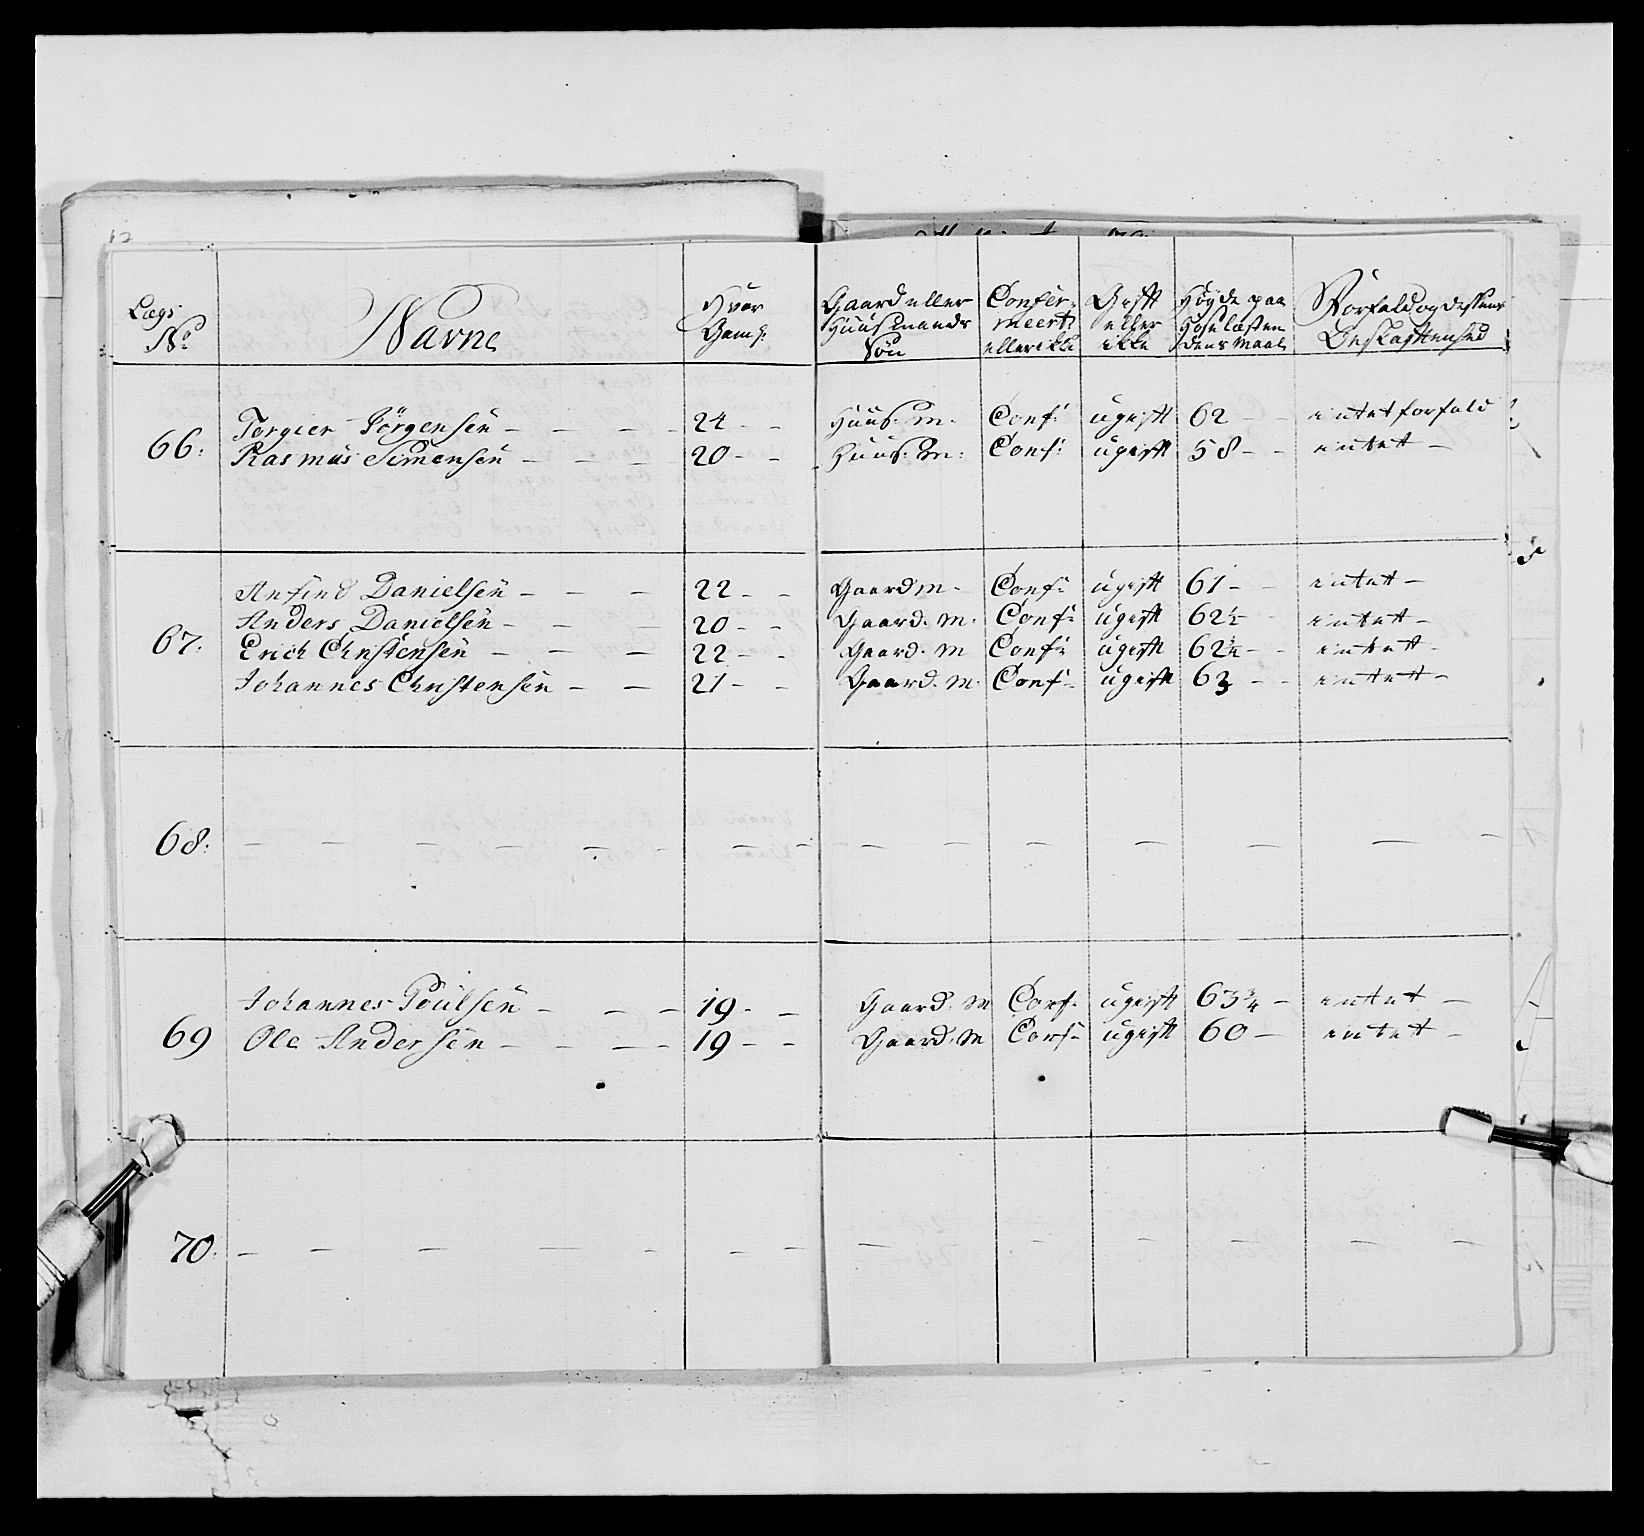 Lægs No Navne Hvor Gaml: Gaard eller Huusmands Søn Confermeert eller ikke Gift eller ikke Høyde paa Hoselæsten Maal Forfald og dessens Beskaffenhed
66: Torgier Jørgensen - - - - 24 - - Huus: M. Conf: ugift 62 - - intet forfald
Rasmus Simensen - - - - 20 - - Huus: M: Conf: ugift 58 - - intet -
67. Anfind Danielsen - - - 22 - - Gaard M - Conf: ugift 61 - - intet -
Anders Danielsen - - - 20 - - Gaard. M. Conf: ugift 62½ intet -
Erich Christensen - - - 22 - - Gaard. M Conf: ugift 62½ - - intet -
Johannes Christensen - - 21 - - Gaard. M. Conf: ugift 63 - - intet -
68: - - - - - - - - - - - - - - -
69 Johannes Poulsen - - - 19 - - Gaard. M Conf. ugift 63¾ - intet -
Ole Andersen - - - - 19 - - Gaard. M Conf: ugift 60 - intet -
70: - - - - - - - - - - - - -